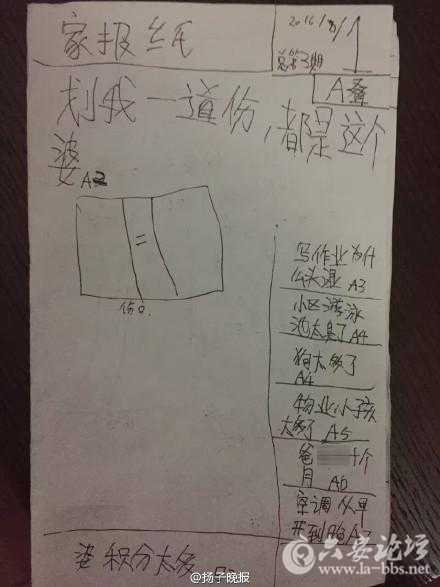 家报纸
2016/8/1
总第3期
A叠
划我一道份,都是这个
婆A2
=
份口
写作业为什
么头湿 A3
小区游泳
池太臭了A4
狗太多了
A4
物业小孩
太多了 A5
爸 十个
月 A6
空调从早
开到晚A7
婆积分太多
@扬子晚报
六安论坛
www.la-bbs.net